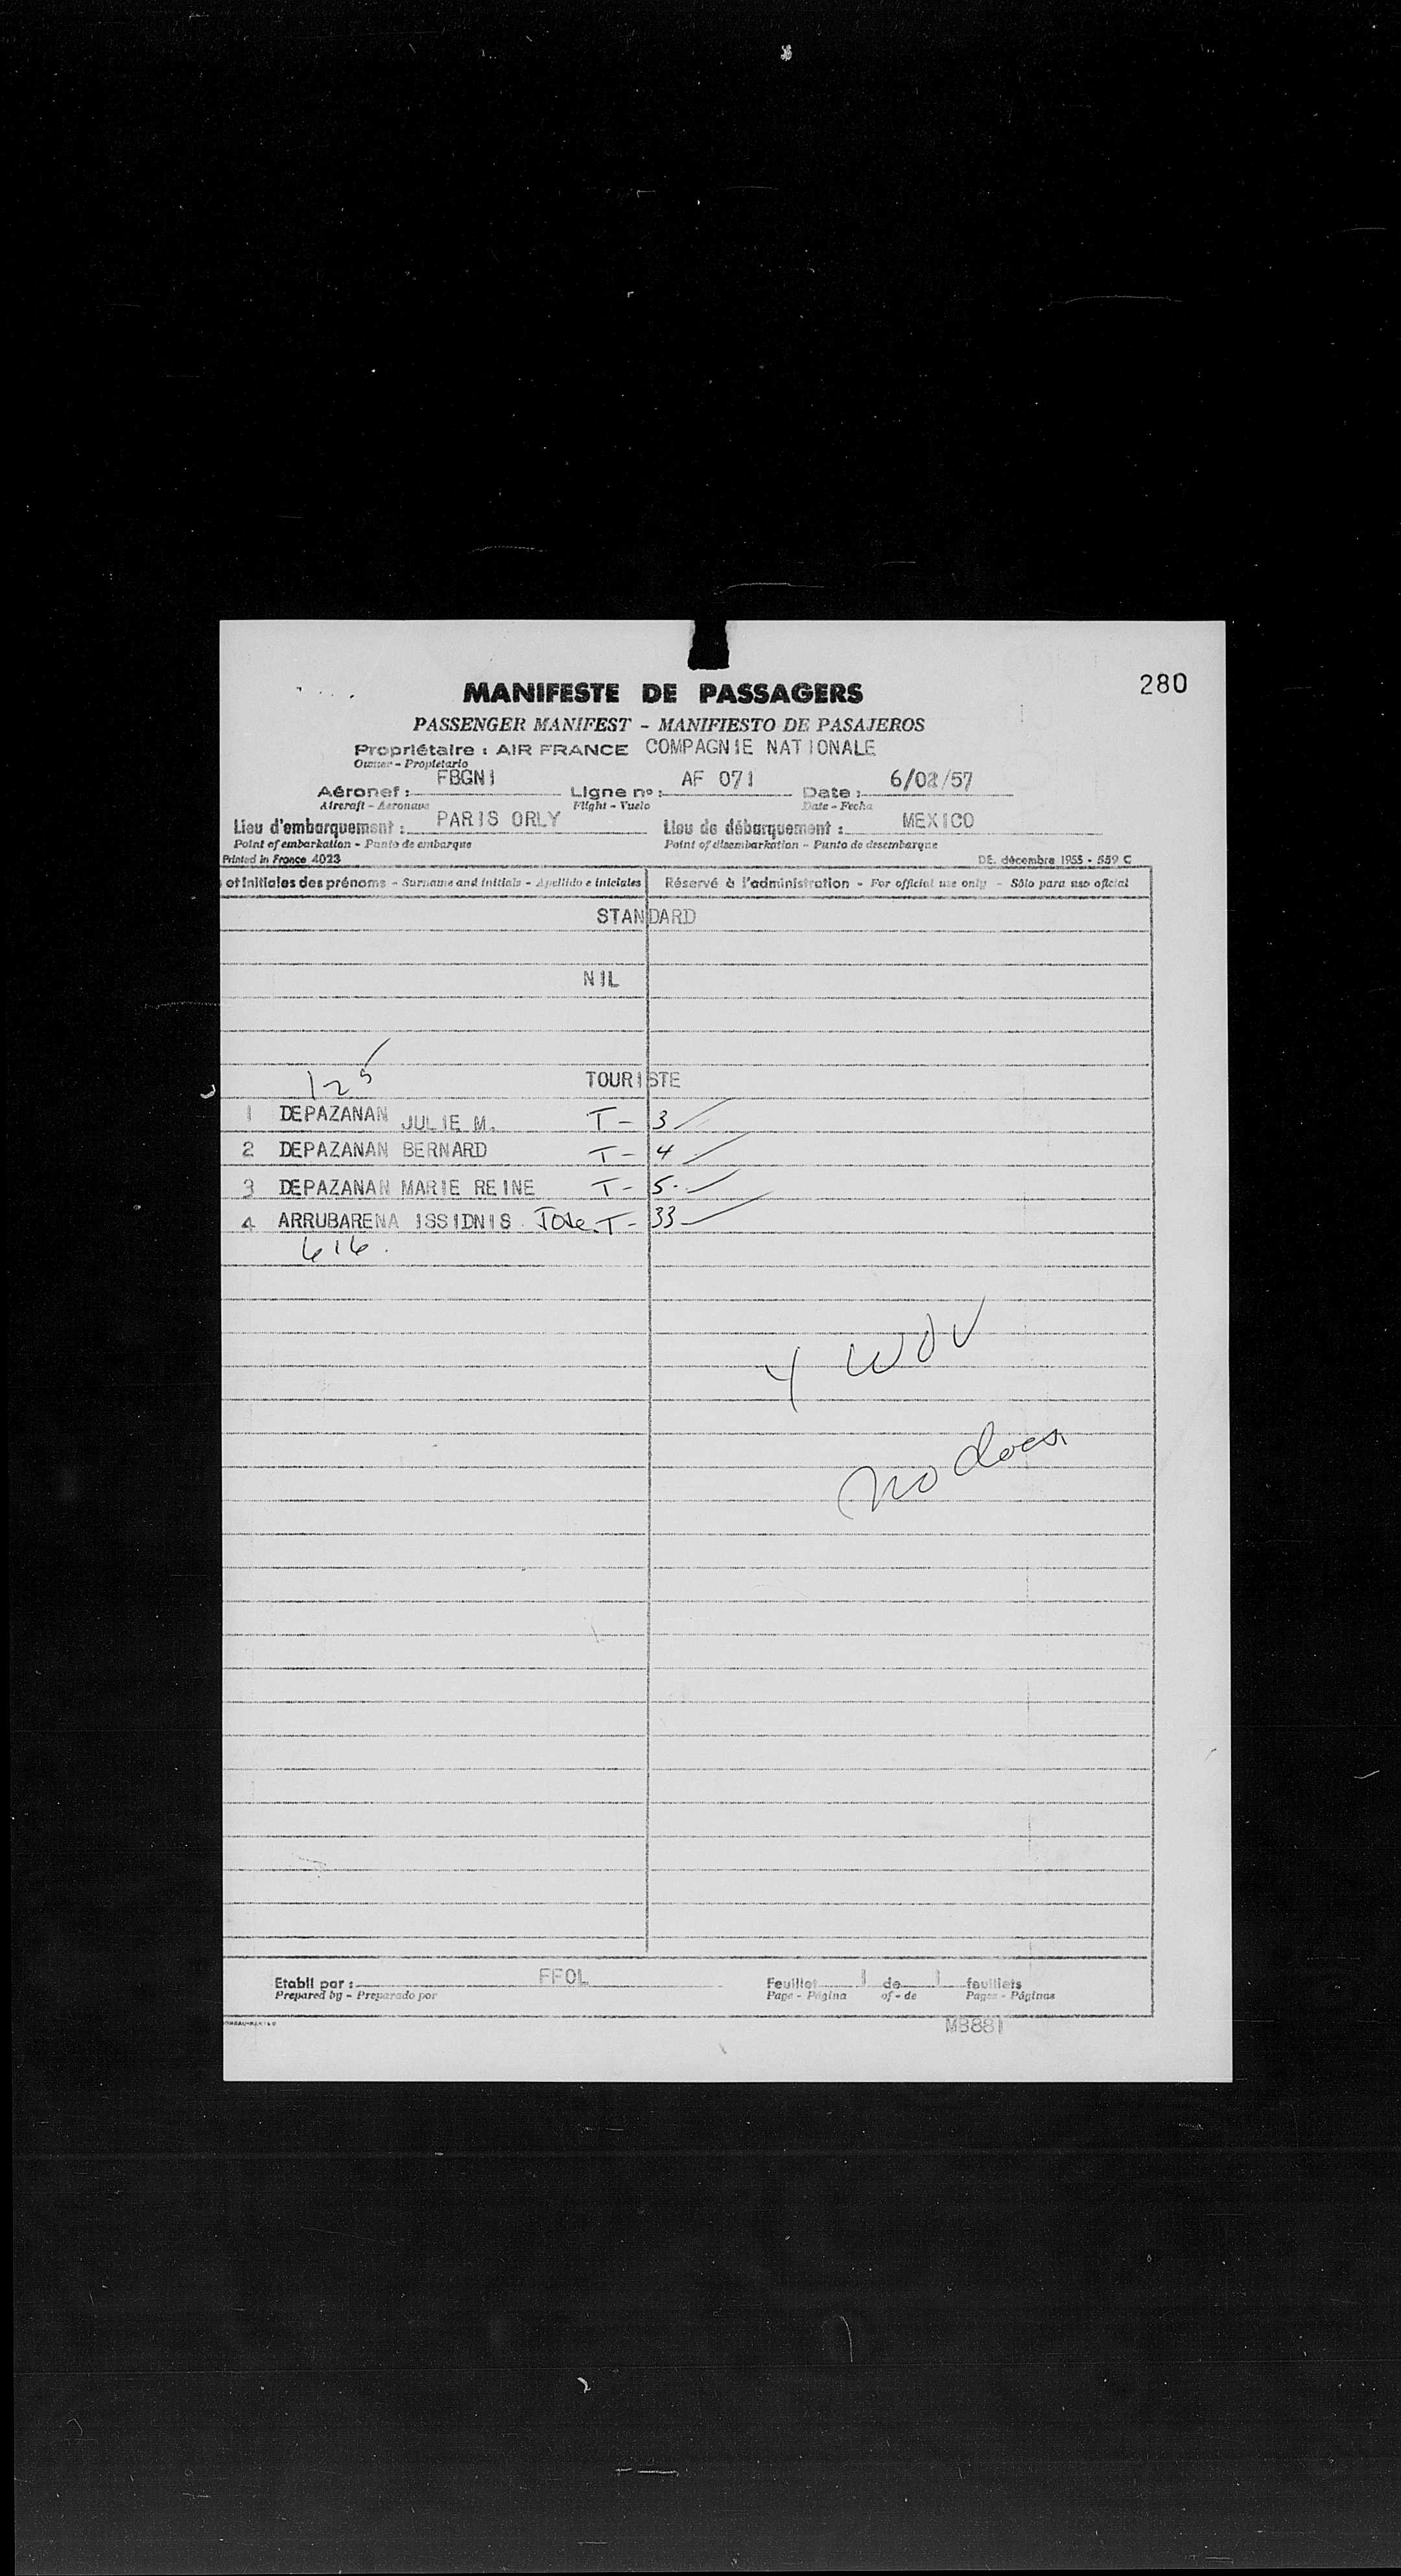 280
MANIFESTE DE PASSAGERS
PASSENGER MANIFEST - MANIFIESTO DE PASAJEROS
Propriétaire : AIR FRANCE COMPAGNIE NATIONALE
Owner - Propietario
Aéronef : FBGNI Ligne nº : AF 071 Date : 6/02/57
Aircraft - Aeronave Flight - Vuelo Date - Fecha
Lieu d'embarquement : PARIS ORLY Lieu de débarquement : MEXICO
Point of embarkation - Punto de embarque Point of disembarkation - Punto de desembarque
Printed in France 4023 DE. décembre 1955 - 559 C
et initiales des prénoms - Surname and initials - Apellido e iniciales Réservé à l'administration - For official use only - Sólo para uso oficial
STANDARD
NIL
125
TOURISTE
1 DEPAZANAN JULIE M. T - 3
2 DEPAZANAN BERNARD T - 4
3 DEPAZANAN MARIE REINE T - 5
4 ARRUBARENA ISSIDNIS Jose. T - 33
616.
4 WOV
no docs.
Etabli par : FFOL Feuillet 1 de 1 feuillets
Prepared by - Preparado por Page - Página of - de Pages - Páginas
MB881